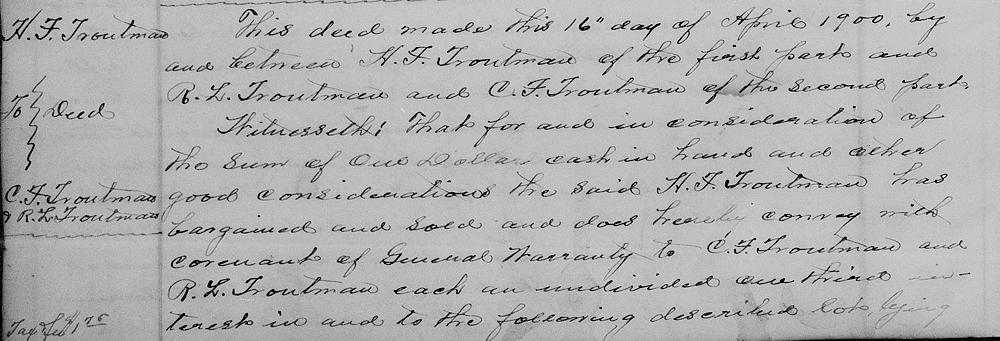 H. F. Troutman
To } Deed
C. F. Troutman
& R. L. Troutman
Tax & fee $1.75
This deed made this 16" day of April 1900, by
and between H. F. Troutman of the first part and
R. L. Troutman and C. F. Troutman of the second part.
Witnesseth; That for and in consideration of
the sum of One Dollar cash in hand and other
good considerations the said H. F. Troutman has
bargained and sold and does hereby convey with
covenant of General Warranty to C. F. Troutman and
R. L. Troutman each an undivided one third in-
terest in and to the following described lot, lying